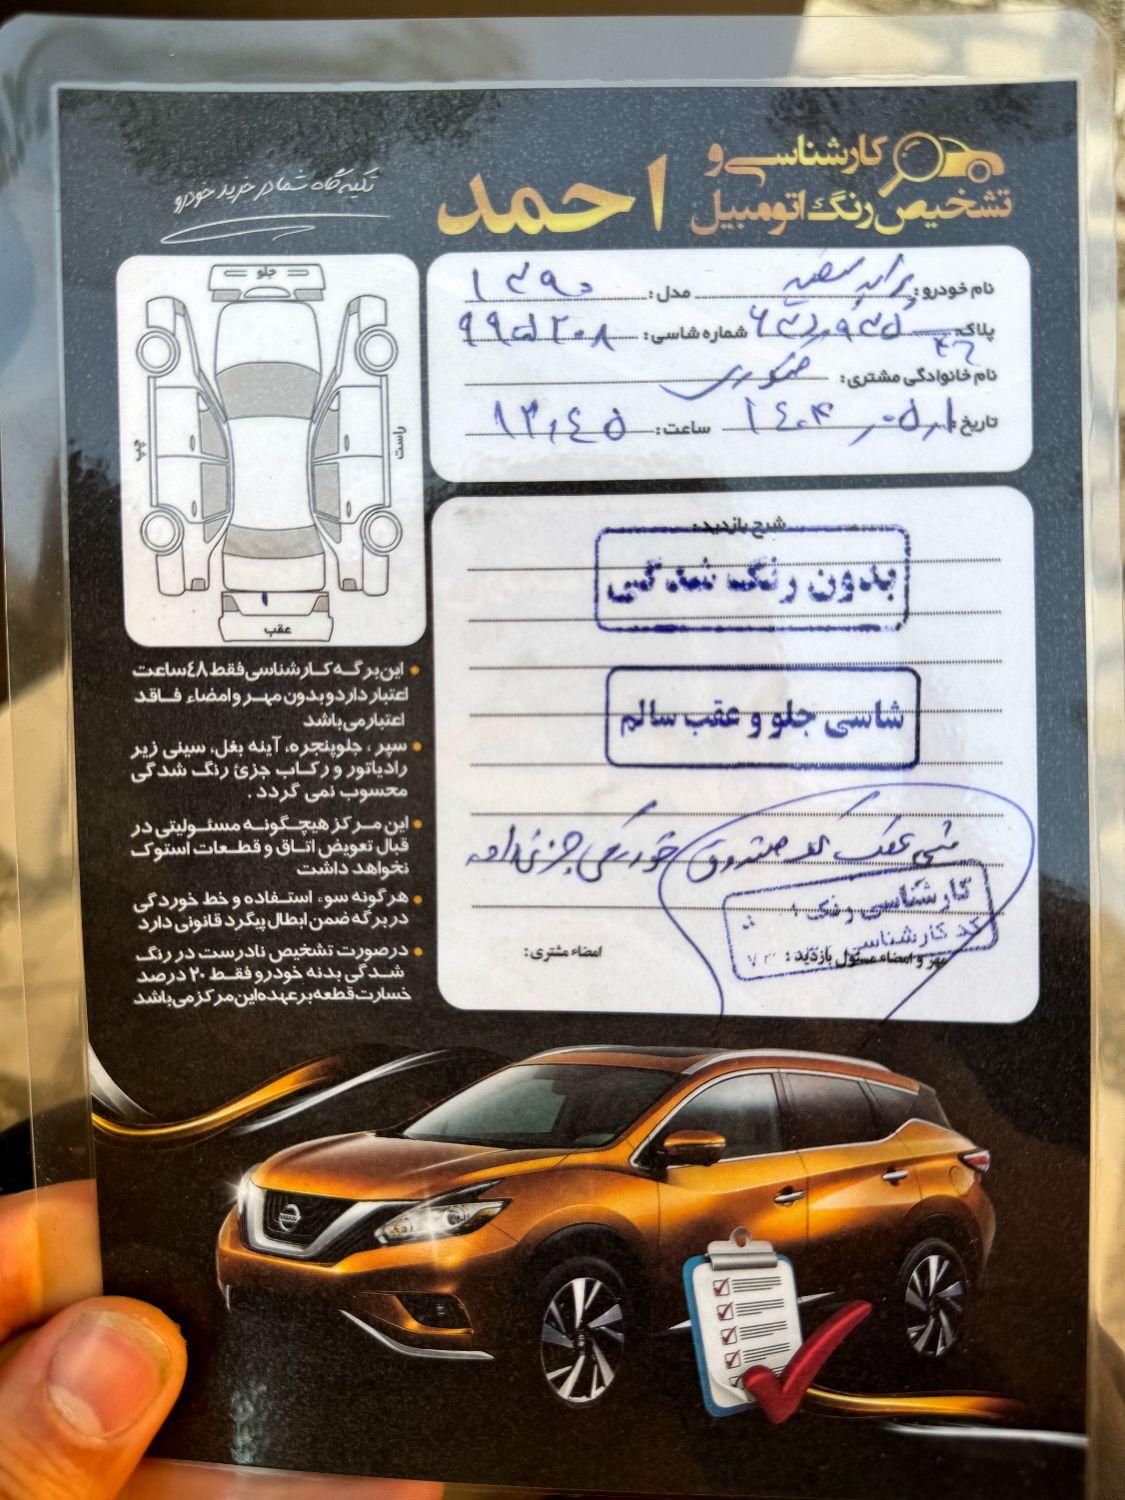 کارشناسی و
تشخیص رنگ اتومبیل
احمد
تکیه گاه شما در خرید خودرو
نام خودرو: پراید سفید مدل: ۱۳۹۰
پلاک: شماره شاسی: ۹۹۵۲۰۸
نام خانوادگی مشتری:
تاریخ: ۱۴۰۴٫۰۵٫۱ ساعت: ۱۳٫۴۵
جلو
چپ
راست
عقب
شرح بازدید:
بدون رنگ شدگی
شاسی جلو و عقب سالم
خوردگی جزئی دارد
کارشناسی رنگ
کد کارشناسی
مهر و امضاء مسئول بازدید:
امضاء مشتری:
این برگه کارشناسی فقط ٤٨ ساعت
اعتبار دارد و بدون مهر و امضاء فاقد
اعتبار می باشد
سپر ، جلوپنجره، آینه بغل، سینی زیر
رادیاتور و رکاب جزئ رنگ شدگی
محسوب نمی گردد .
این مرکز هیچگونه مسئولیتی در
قبال تعویض اتاق و قطعات استوک
نخواهد داشت
هرگونه سوء استفاده و خط خوردگی
در برگه ضمن ابطال پیگرد قانونی دارد
درصورت تشخیص نادرست در رنگ
شدگی بدنه خودرو فقط ۲۰ درصد
خسارت قطعه بر عهده این مرکز می باشد